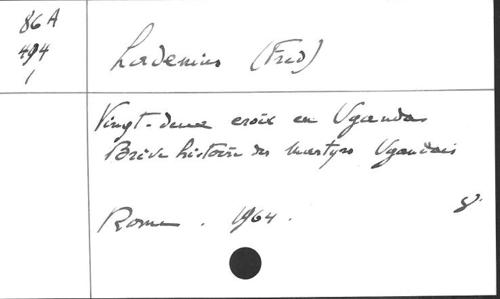 86 A
494
1
Ladenius (Fred)
Vingt-deux croix en Uganda
Brève histoire des Martyrs Ugandais
Rome. 1964.
8°